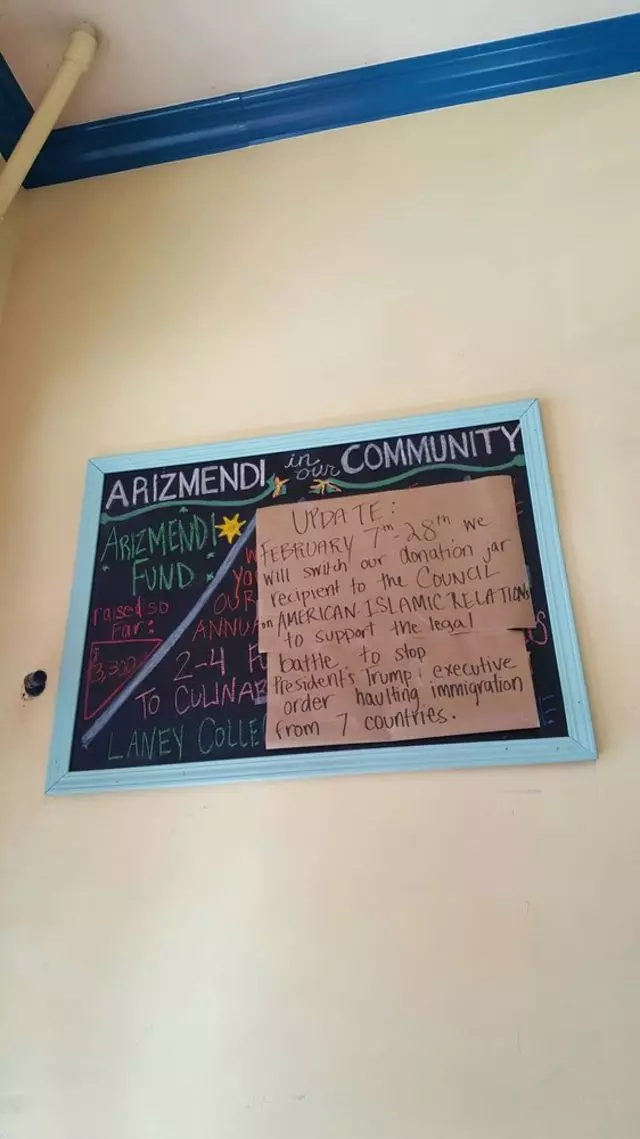 ARIZMENDI in our COMMUNITY
ARIZMENDI
FUND
raised so
far:
$
3,300
OUR
ANNUA
2-4 F
TO CULINAR
LANEY COLLE
UPDATE:
FEBRUARY 7th-28th we
will switch our donation jar
recipient to the COUNCIL
on AMERICAN-ISLAMIC RELATIONS
to support the legal
battle to stop
President's Trump executive
order haulting immigration
from 7 countries.